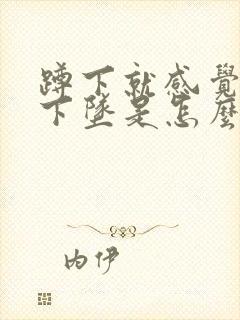 蹲下就感覺
下墜是怎麼
内伊